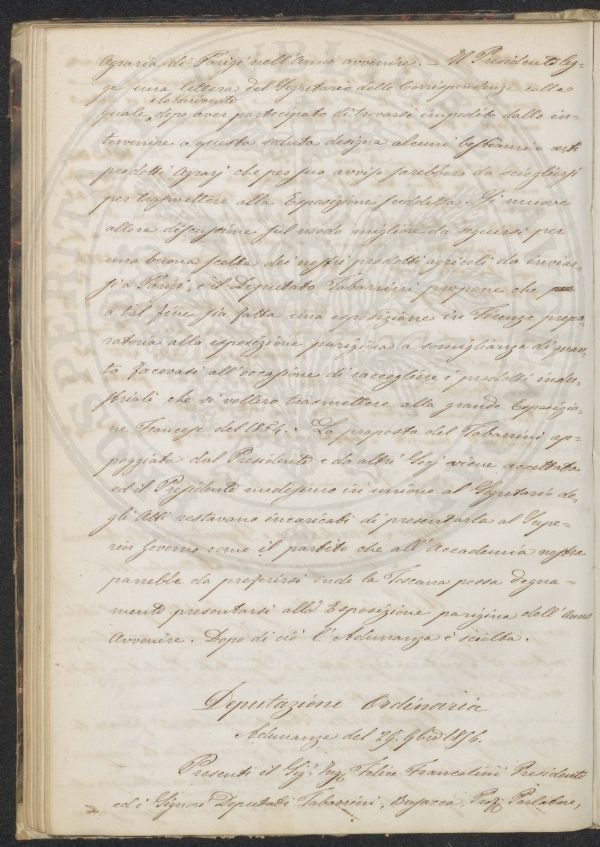 Agraria di Parigi nell'Anno avvenire. — Il Presidente leg-
ge una lettera del Segretario delle Corrispondenze nella
quale, dopo aver partecipato di trovarsi impedito dallo in-
tervenire a questa seduta designa alcuni bestiami e certi
prodotti Agrarj che per suo avviso sarebbero da sciegliersi
per trasmettere alla Esposizione suddetta. Si muove
allora discussione sul modo migliore da seguirsi per
una buona scelta dei nostri prodotti agricoli da inviar-
si a Parigi, e il Deputato Tabarrini propone che
a tal fine sia fatta una esposizione in Firenze prepa-
ratoria alla esposizione parigina a somiglianza di quan-
to facevasi all'occasione di raccogliere i prodotti indu-
striali che si vollero trasmettere alla grande Esposizio-
ne Francese del 1854. La proposta del Tabarrini ap-
poggiata dal Presidente e da altri Socj viene accettata
ed il Presidente medesimo in unione al Segretario de-
gli Atti restavano incaricati di presentarla al Supe-
rior Governo come il partito che all'Accademia nostra
parrebbe da preferirsi onde la Toscana possa degna-
mente presentarsi alla Esposizione parigina dell'Anno
Avvenire. Dopo di ciò l'Adunanza è sciolta.
Deputazione Ordinaria
Adunanza del 29. 9bre 1856.
Presenti il Sig. Felice Francolini Presidente
ed i Signori Deputati Tabarrini, Parlatore,
PUBLICAE
PROSPERITATIS